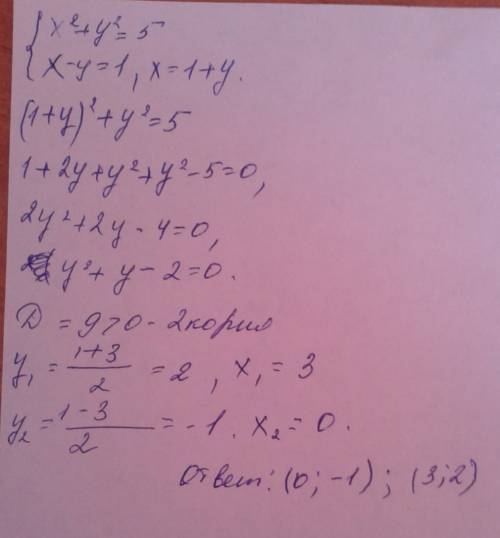 x²+y²=5
x-y=1, x=1+y.
(1+y)²+y²=5
1+2y+y²+y²-5=0,
2y²+2y-4=0,
y²+y-2=0.
D=9>0-2корня
y₁=(1+3)/2=2, x₁=3
y₂=(1-3)/2=-1. x₂=0.
Ответ: (0;-1); (3;2)